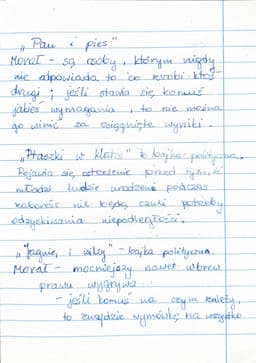 „Pan i pies"
Morał - są osoby, którym nigdy
nie odpowiada to co zrobi ktoś
drugi ; jeśli stawia się komuś
jakieś wymagania, to nie można
go winić za osiągnięte wyniki.
„Ptaszki w klatce" to bajka-polityczna.
Pojawia się ostrzeżenie przed tym, że
młodzi ludzie urodzeni podczas
zaborów nie będą czuli potrzeby
odzyskiwania niepodległości.
„Jagnię i wilcy" - bajka polityczna.
Morał - mocniejszy nawet wbrew
prawu wygrywa
- jeśli komuś na czymś zależy,
to znajdzie wymówkę na wszystko